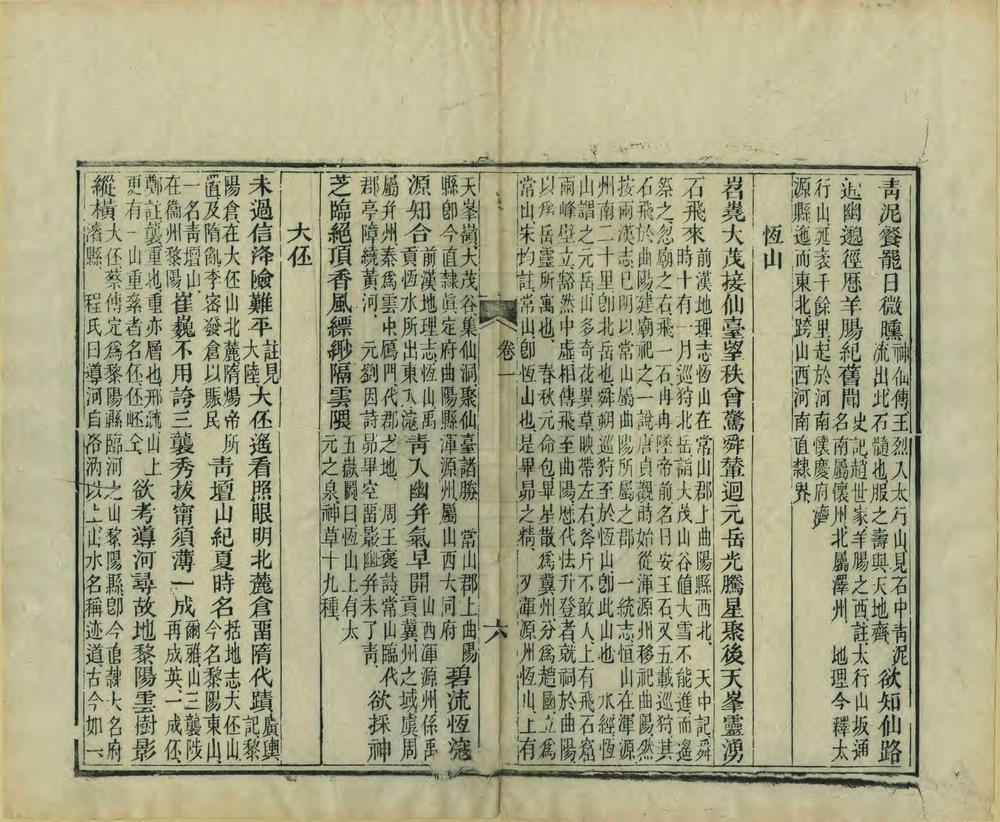 青泥餐罷日微曛
神仙傳王烈入太行山見石中青泥
流出此石髓也服之壽與天地齊
欲知仙路
近幽遐徑歷羊腸紀舊聞
史記趙世家羊腸之西註太行山坂通
名南屬懷州北屬澤州 地理今釋太
行山延袤千餘里起於河南懷慶府濟
源縣迤而東北跨山西河南直隸界
恆山
岧嶤大茂接仙臺望秩曾驚舜輦迴元岳光騰星聚後天峯靈湧
石飛來
前漢地理志恆山在常山郡上曲陽縣西北 天中記舜
時十有一月巡狩北岳詣大茂山谷值大雪不能進而遙
祭之忽廟之右飛一石冉冉墜帝前名曰安王石又五載巡狩其
石飛於曲陽建廟祀之一說唐貞觀時始從渾源州移祀曲陽然
按兩漢志已明以常山屬曲陽所屬之郡 一統志恒山在渾源
州南二十里卽北岳也舜朔巡狩至於恆山卽此山也 水經恆
山謂之元岳山多奇花異草映帶左右斧斤不敢入上有飛石窟
兩峰壁立豁然中虛相傳飛至曲陽歷代怯升登者就祠於曲陽
以爲岳靈所寓也 春秋元命包畢星散爲冀州分爲趙國立爲
常山宋均註常山卽恆山也是畢昴之精 渾源州恆山上有
卷一
六
天峯嶺大茂谷集仙洞聚仙臺諸勝 常山郡上曲陽
縣卽今直隸眞定府曲陽縣渾源州屬山西大同府
碧流恆滱
源知合
前漢地理志恆山禹
貢恆水所出東入滱
靑入幽幷氣早開
山西渾源州係禹
貢冀州之域虞周
屬幷州秦爲雲中鴈門代郡之地 周王褒詩常山臨代
郡亭障繞黃河 元劉因詩昴畢空留影幽幷未了靑
欲採神
芝臨絕頂香風縹緲隔雲隈
五嶽圖曰恆山上有太
元之泉神草十九種
大伾
未過信降險難平
註見
大陸
大伾遙看照眼明北麓倉留隋代蹟
廣輿
記黎
陽倉在大伾山北麓隋煬帝所
置及隋亂李密發倉以賑民
靑壇山紀夏時名
括地志大伾山
今名黎陽東山
一名靑壇山
在衞州黎陽
崔巍不用誇三襲秀拔甯須薄一成
爾雅山三襲陟
再成英一成伾
鄭註襲重也重亦層也邢疏山上
更有一山重累者名伾伾坯仝
欲考導河尋故地黎陽雲樹影
縱橫
大伾蔡傳定爲黎陽縣臨河之山黎陽縣卽今直隸大名府
濬縣 程氏曰導河自洛汭以上山水名稱迹道古今如一